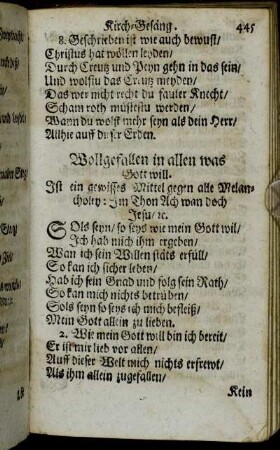 Kirch-Gesäng. 445
8. Geschrieben ist wie auch bewust/
Christus hat wöllen leyden/
Durch Creutz und Peyn gehn in das sein/
Und wolstu das Creutz meyden/
Das wer nicht recht du fauler Knecht/
Scham roth müstestu werden/
Wann du wolst mehr seyn als dein Herr/
Allhie auff dieser Erden.
Wollgefallen in allen was
Gott will.
Ist ein gewisses Mittel gegen alle Melan-
choley: Im Thon Ach wan doch
Jesu/ ꝛc.
SOls seyn/ so seys wie mein Gott wil/
Ich hab mich ihm ergeben/
Wan ich sein Willen stäts erfüll/
So kan ich sicher leben/
Hab ich sein Gnad und folg sein Rath/
So kan mich nichts betrüben/
Sols seyn so seys ich mich befleiß/
Mein Gott allein zu lieben.
2. Wie mein Gott will bin ich bereit/
Er ist mir lieb vor allen/
Auff dieser Welt mich nichts erfrewt/
Als ihm allein zugefallen/
Kein